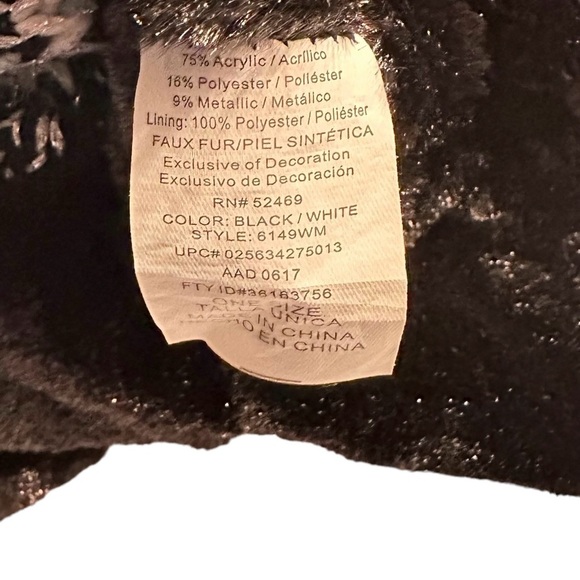 75% Acrylic / Acrílico
16% Polyester / Poliéster
9% Metallic / Metálico
Lining: 100% Polyester / Poliéster
FAUX FUR/PIEL SINTÉTICA
Exclusive of Decoration
Exclusivo de Decoración
RN# 52469
COLOR: BLACK / WHITE
STYLE: 6149WM
UPC# 025634275013
AAD 0617
FTY ID#36163756
ONE SIZE
TALLA UNICA
MADE IN CHINA
EN CHINA